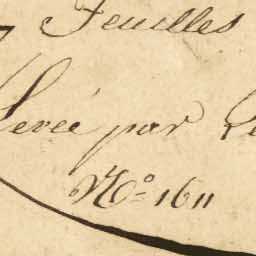 7 Feuilles
Levée par
No. 1611